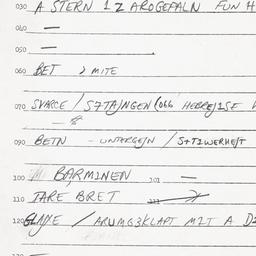 030 A STERN 12 AROGEFALN FUN H
040 —
050 —
060 BET 2 MITE
070 SVARCE / S7TAJNGEN (066 HEBREJ1SE
090 BETN - UNTERGEJN / S+T1WERHEJT
100 BARMINEN 101 —
110 TARE BRET 111
120 / ARUMG3KLAPT M2T A D